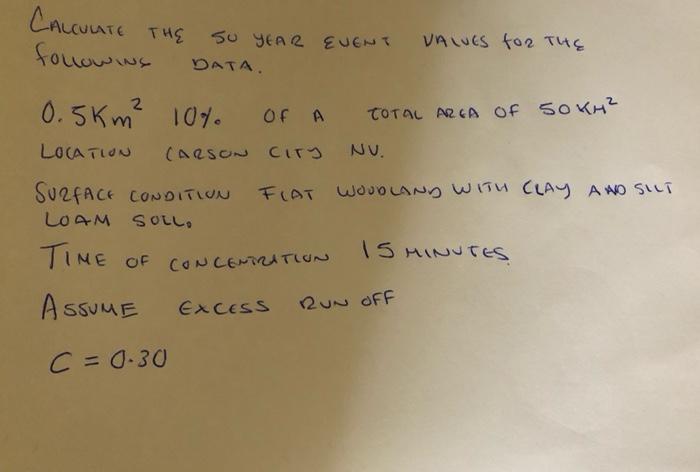 CALCULATE THE 50 YEAR EVENT VALUES FOR THE
FOLLOWING DATA.
0.5Km² 10% OF A TOTAL AREA OF 50KM²
LOCATION CARSON CITY NV.
SURFACE CONDITION FLAT WOODLAND WITH CLAY AND SILT
LOAM SOIL.
TIME OF CONCENTRATION 15 MINUTES.
ASSUME EXCESS RUN OFF
C = 0.30